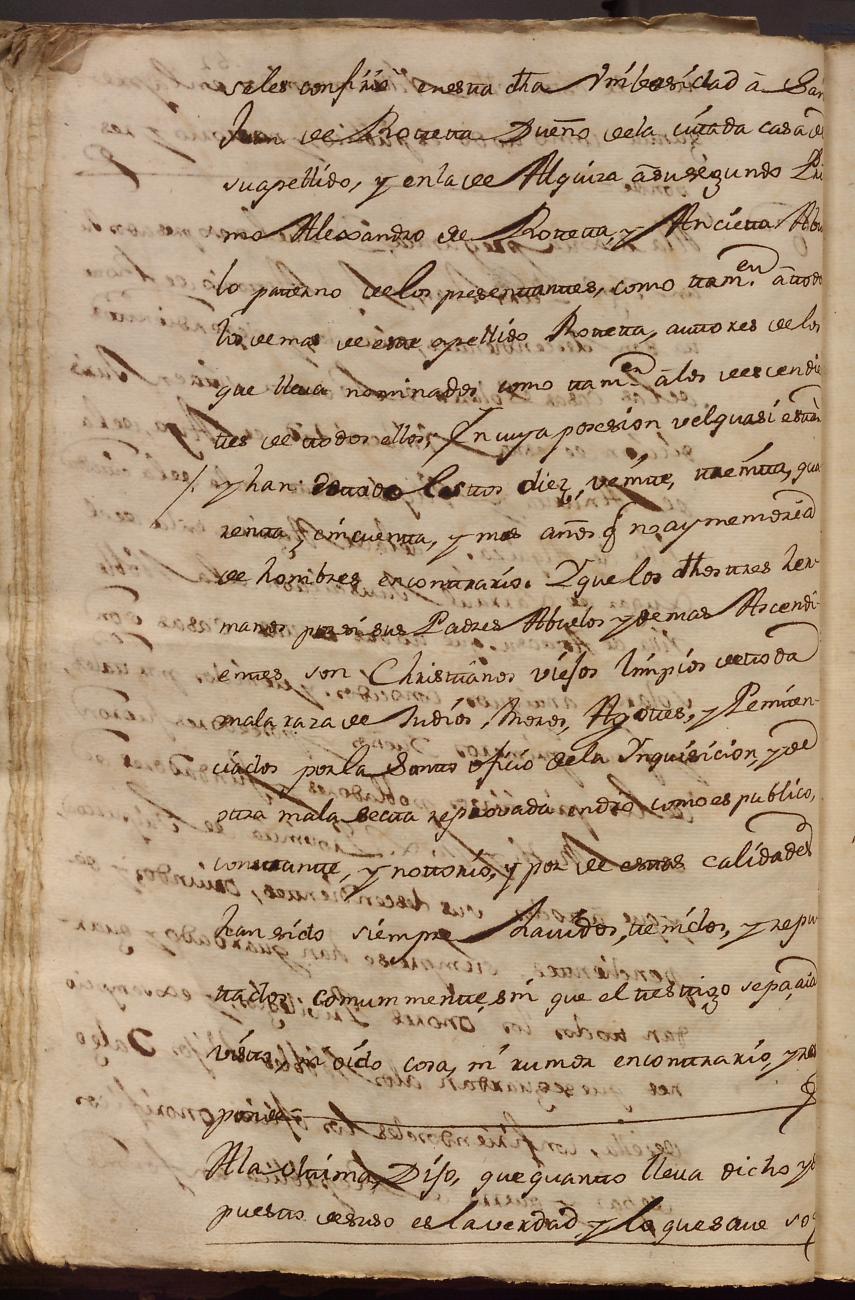 seles confirio en esta dha Vnibersidad â San
Juan de Rotteta Dueño dela cittada casa de
su apellido, y en la de Alquiza â su segundo Pri
mo Alexandro de Rotteta, y Ancietta Abu
lo patterno delos presenttanttes, como ttam.en â ttodo
los demas de este apellido Rotteta, auttores delos
que lleva nominados como ttam.en â los descendie
ttes de ttodos ellos; En cuya posesion velquasi están
/. y han esttado los ttos diez, veintte, tteintta, qua
rentta, cincuentta, y mas años q no ay memoria
de hombres en conttrario. Y que los dhos ttres her-
manos por si sus Padres Abuelos y demas Ascendi-
enttes son Christtianos viejos limpios de ttoda
mala raza de Judios, Moros, Agottes, y Peniten-
ciados por la Santto oficio dela Inquisicion, y de
otra mala Sectta reprovada en dro como es publico,
constantte, y nottorio, y por de esttas calidades
han sido siempre havidos, ttenidos, y repu
ttados comunmentte, sin que el ttesttigo sepa, aia
vistto, ni oido cosa, ni rumor en conttrario, y res
ponde
Ala ultima, Dijo, que quantto lleva dicho y de
puestto de suso es la verdad y lo que save so